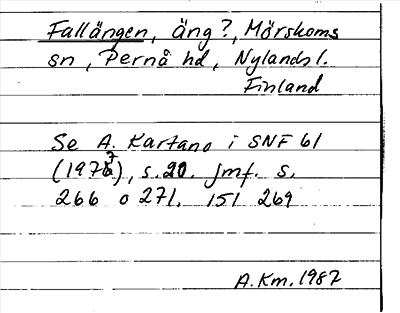 Fallängen, äng?, Mörskoms
sn, Pernå hd, Nylands l.
Finland
Se A. Kartano i SNF 61
(1977), s. 20. jmf. s.
266 o 271. 151 269
A.Km. 1987